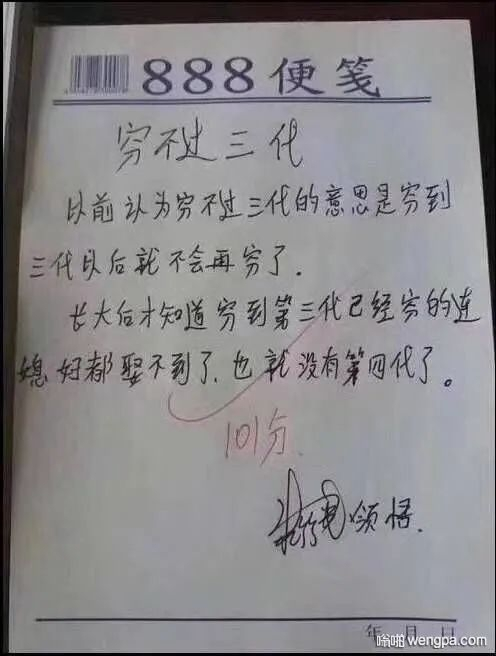 888便笺
穷不过三代
以前认为穷不过三代的意思是穷到
三代以后就不会再穷了.
长大后才知道穷到第三代已经穷的连
媳好都娶不到了,也就没有第四代了。
101分.
领悟.
年 月 日
嗡啪wengpa.com